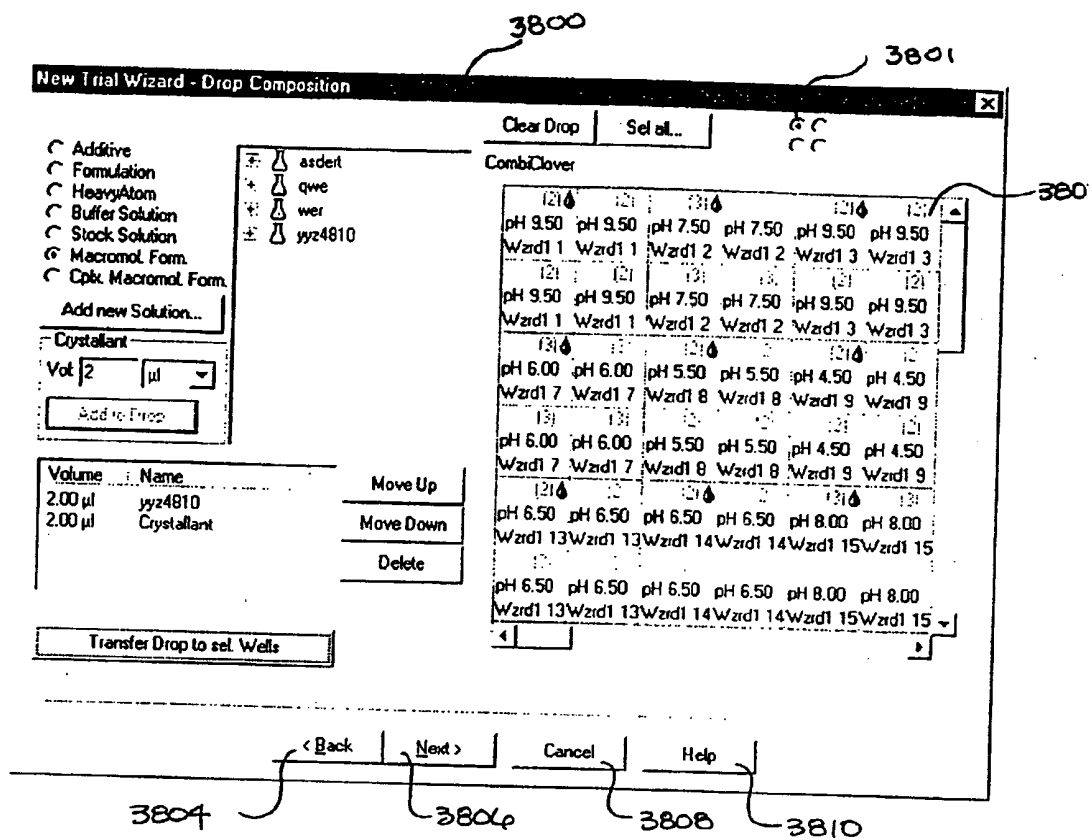 3800
3801
New Trial Wizard - Drop Composition
Clear Drop Sel all...
Additive
Formulation
HeavyAtom
Buffer Solution
Stock Solution
Macromol. Form.
Cplx. Macromol. Form.
asdert
qwe
wer
yyz4810
CombiClover
380
Add new Solution...
Crystallant
Vol: 2 µl
Add to Drop
Volume Name
2.00 µl yyz4810
2.00 µl Crystallant
Move Up
Move Down
Delete
Transfer Drop to sel. Wells
[2] [2] [3] [2] [2]
pH 9.50 pH 9.50 pH 7.50 pH 7.50 pH 9.50 pH 9.50
Wzrd1 1 Wzrd1 1 Wzrd1 2 Wzrd1 2 Wzrd1 3 Wzrd1 3
[2] [2] [3] [3] [2] [2]
pH 9.50 pH 9.50 pH 7.50 pH 7.50 pH 9.50 pH 9.50
Wzrd1 1 Wzrd1 1 Wzrd1 2 Wzrd1 2 Wzrd1 3 Wzrd1 3
[3] [2] [2]
pH 6.00 pH 6.00 pH 5.50 pH 5.50 pH 4.50 pH 4.50
Wzrd1 7 Wzrd1 7 Wzrd1 8 Wzrd1 8 Wzrd1 9 Wzrd1 9
[3] [3] [2] [2] [2] [2]
pH 6.00 pH 6.00 pH 5.50 pH 5.50 pH 4.50 pH 4.50
Wzrd1 7 Wzrd1 7 Wzrd1 8 Wzrd1 8 Wzrd1 9 Wzrd1 9
[2] [2] [3] [3]
pH 6.50 pH 6.50 pH 6.50 pH 6.50 pH 8.00 pH 8.00
Wzrd1 13 Wzrd1 13 Wzrd1 14 Wzrd1 14 Wzrd1 15 Wzrd1 15
pH 6.50 pH 6.50 pH 6.50 pH 6.50 pH 8.00 pH 8.00
Wzrd1 13 Wzrd1 13 Wzrd1 14 Wzrd1 14 Wzrd1 15 Wzrd1 15
< Back Next > Cancel Help
3804 3806 3808 3810